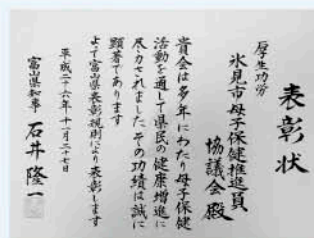 表彰状
厚生功労
氷見市母子保健推進員
協議会殿
貴会は多年にわたり母子保健
活動を通して県民の健康増進に
尽力されましたその功績は誠に
顕著であります
よって富山県表彰規則により表彰します
平成二十六年十一月二十七日
富山県知事 石井隆一